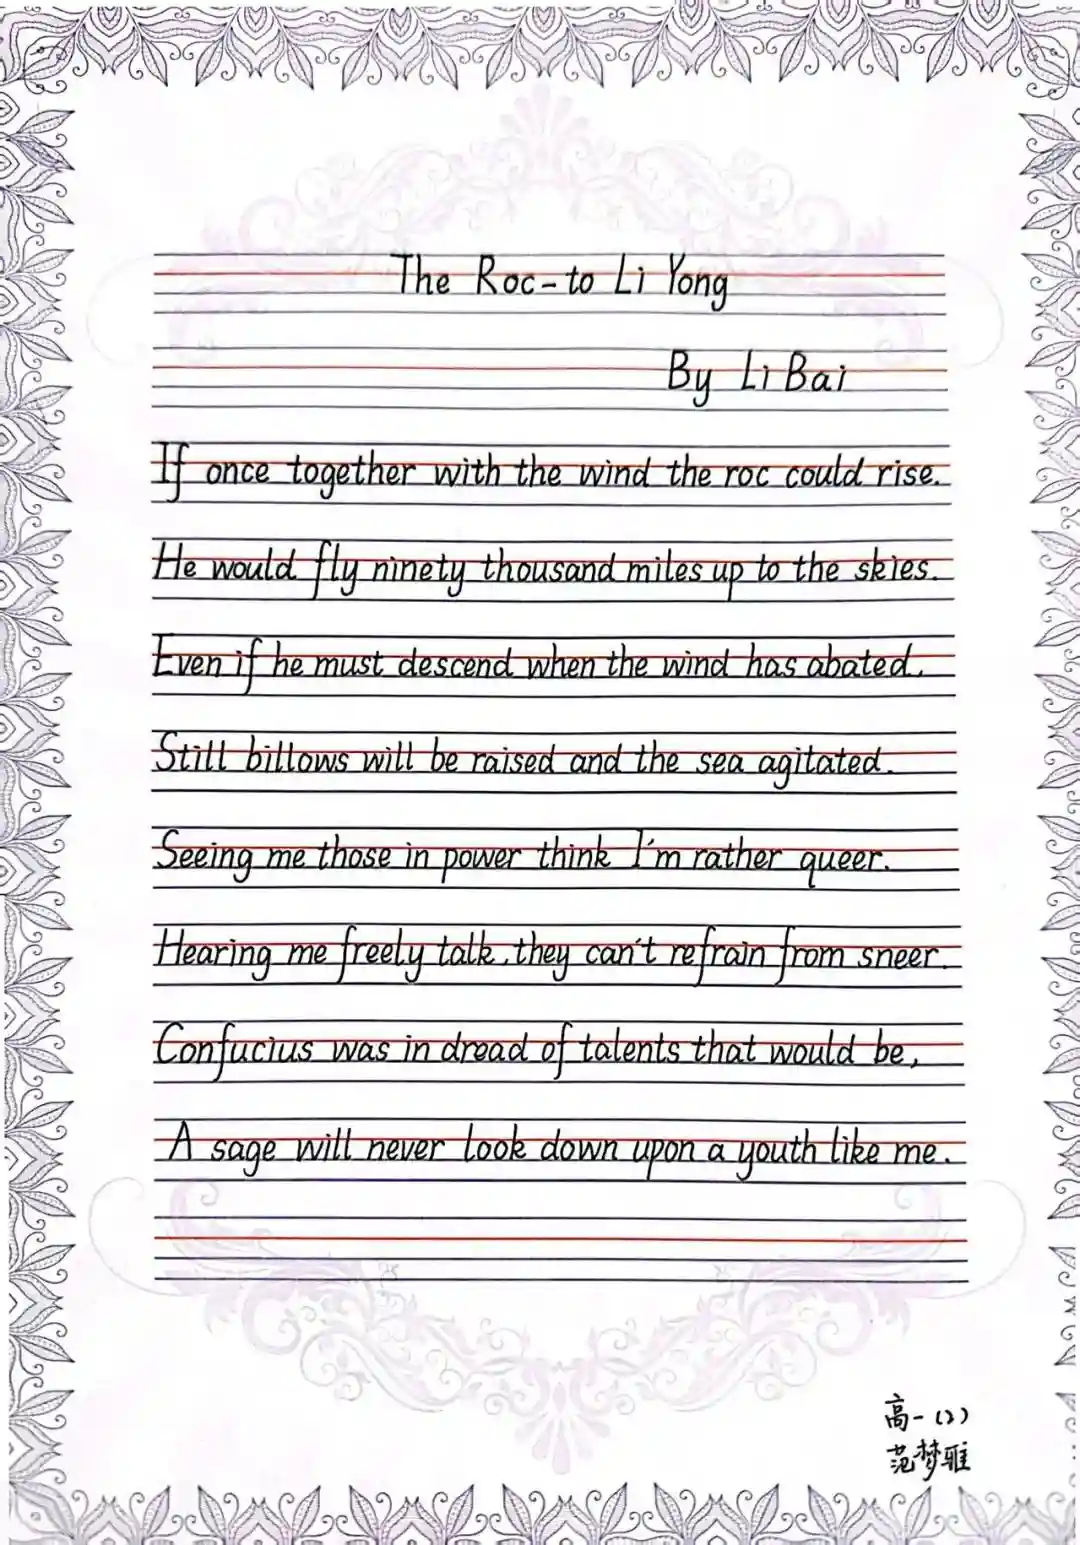 The Roc-to Li Yong
By Li Bai
If once together with the wind the roc could rise.
He would fly ninety thousand miles up to the skies.
Even if he must descend when the wind has abated.
Still billows will be raised and the sea agitated.
Seeing me those in power think I'm rather queer.
Hearing me freely talk, they can't refrain from sneer.
Confucius was in dread of talents that would be,
A sage will never look down upon a youth like me.
高一(2)
范梦雅